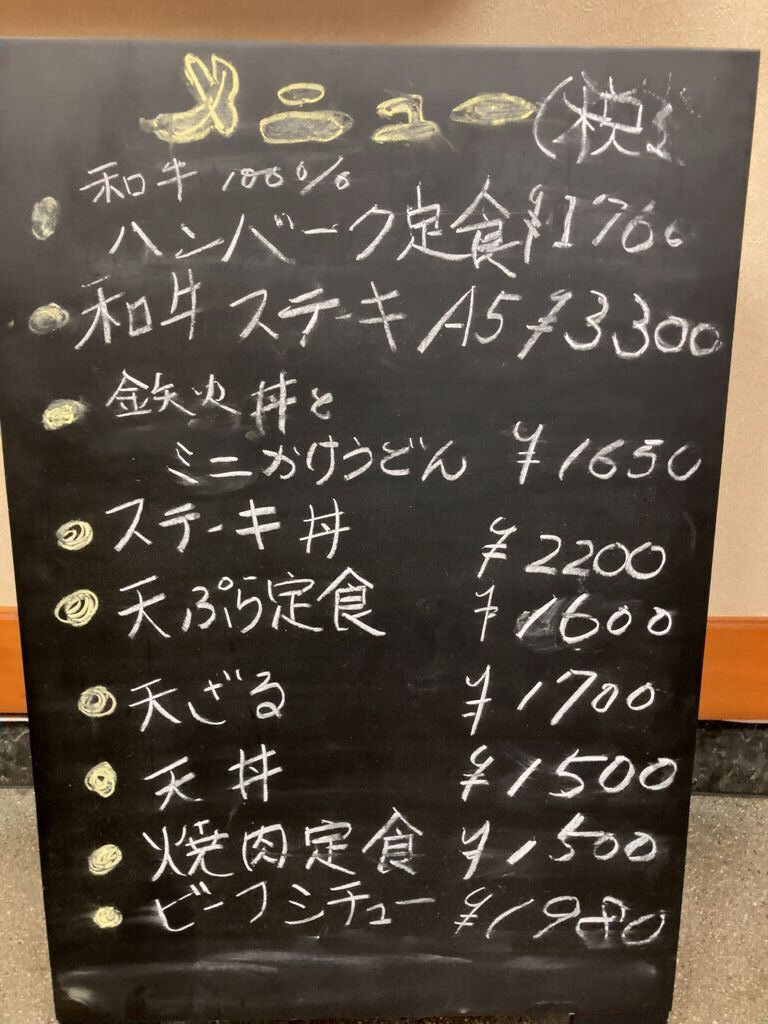 メニュー (税
和牛 100%
ハンバーク定食 ¥1760
和牛ステーキ A5 ¥3300
鉄火丼と
ミニかけうどん ¥1650
ステーキ丼 ¥2200
天ぷら定食 ¥1600
天ざる ¥1700
天丼 ¥1500
焼肉定食 ¥1500
ビーフシチュー ¥1980